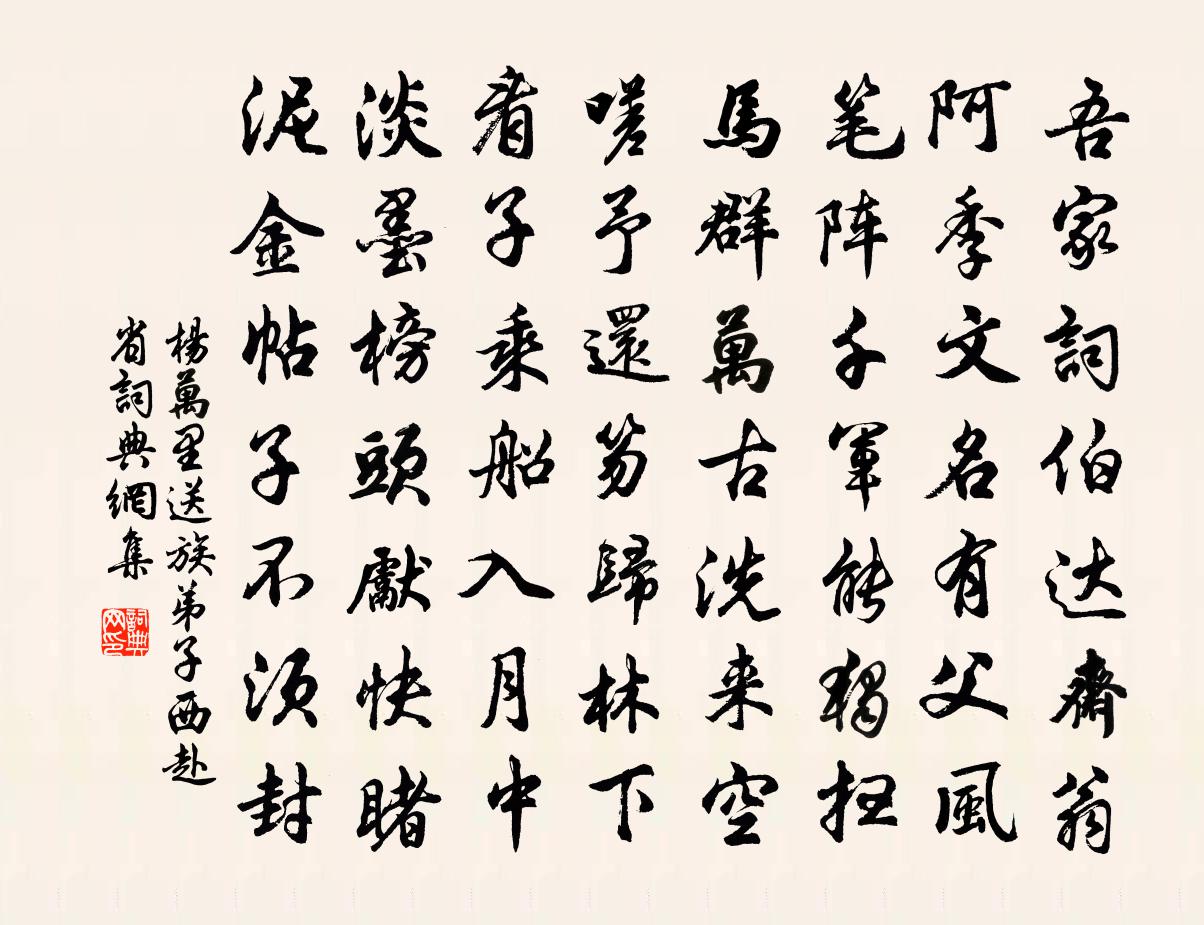 吾家詞伯达齋翁
阿季文名有父風
笔阵千軍能獨扫
馬群萬古洗来空
嗟予還笏歸林下
看子乘船入月中
淡墨榜頭獻快睹
泥金帖子不須封
楊萬里送族弟子西赴
省詞典網集
詞典网印